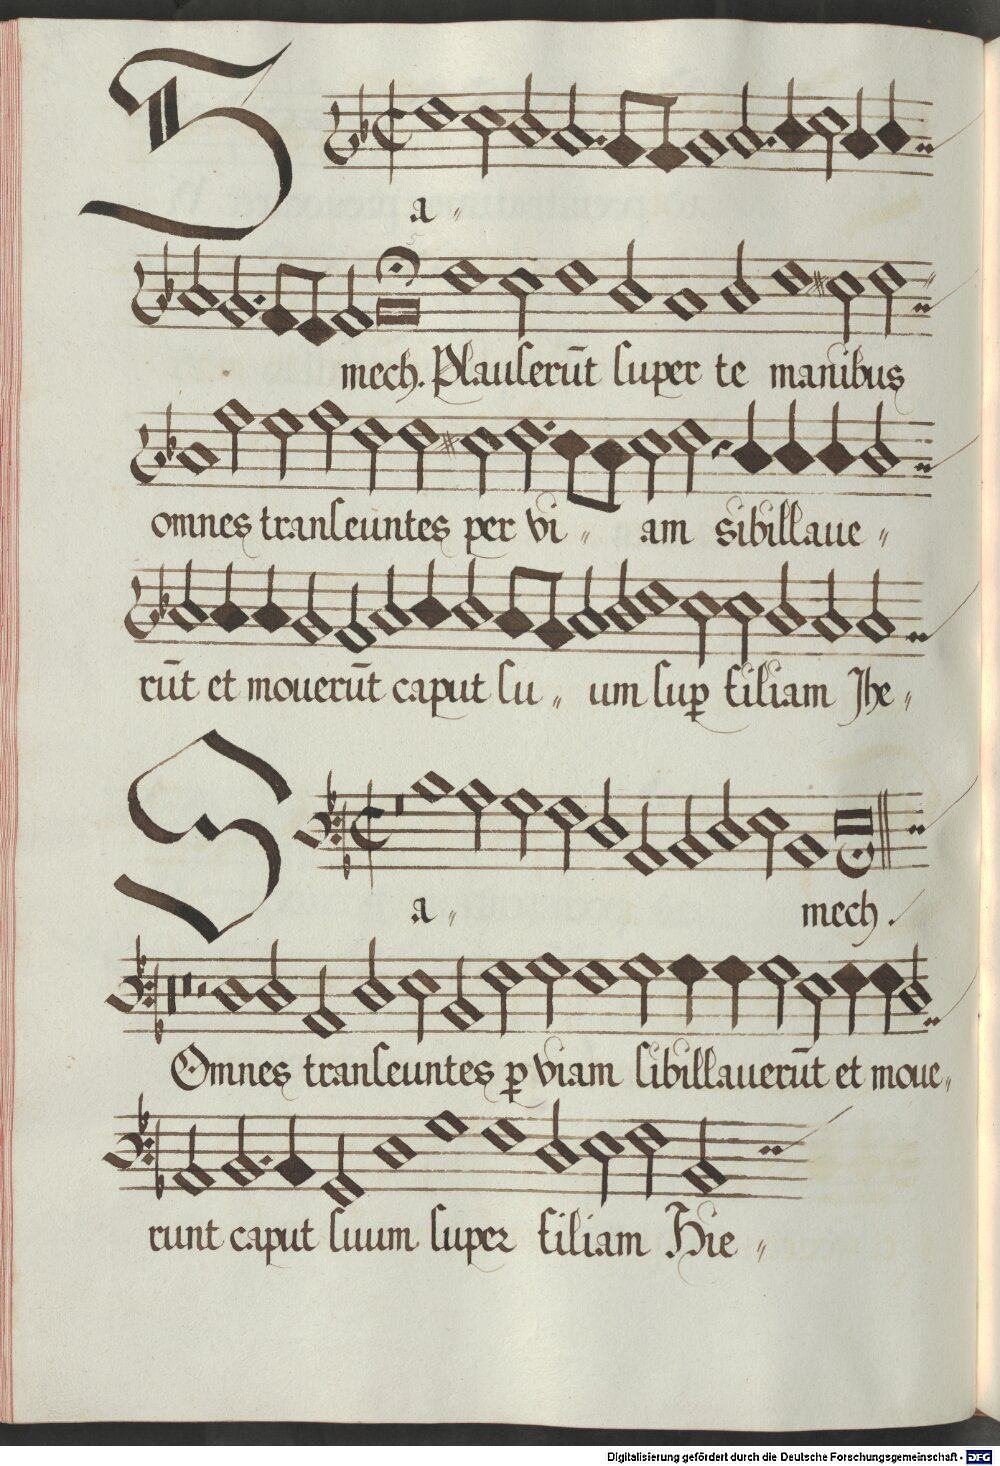 S
a〃
mech. Plauserūt super te manibus
omnes transeuntes per vi〃 am sibillaue〃
rūt et mouerūt caput su〃 um sup̱ filiam Jhe〃
S
a〃 mech.
Omnes transeuntes p̱ viam sibillauerūt et moue〃
runt caput suum super filiam Hie〃
Digitalisierung gefördert durch die Deutsche Forschungsgemeinschaft - DFG